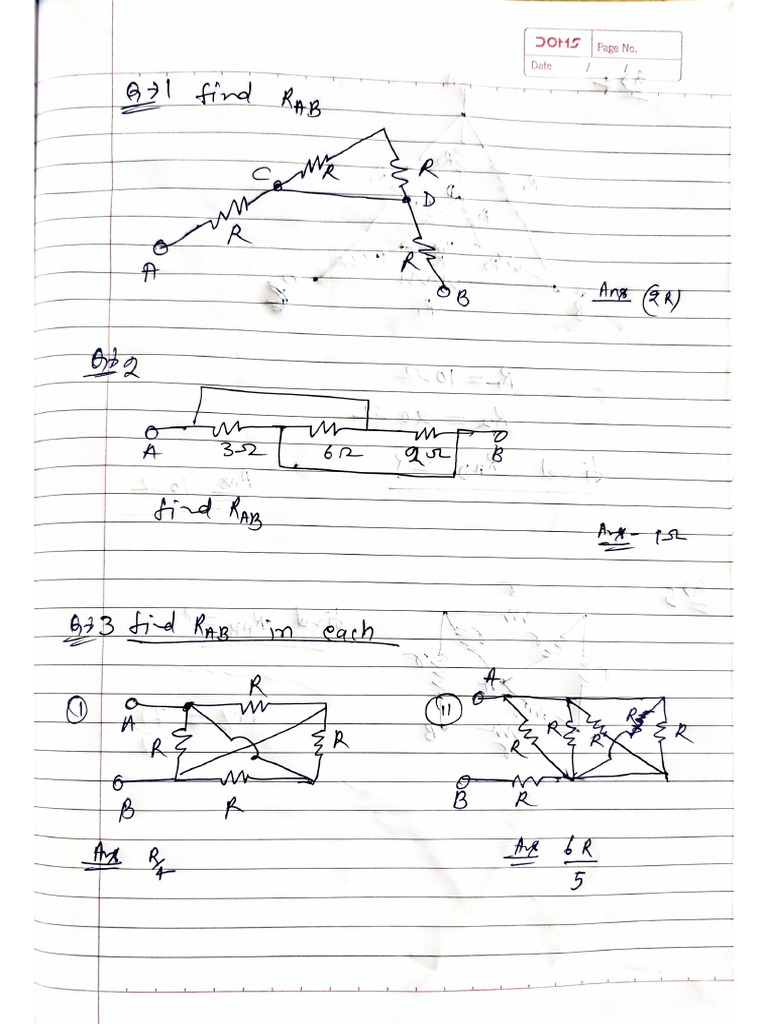 DOMS
Page No.
Date / /
Q→1 find R_AB
C R R
D
R
A
R
B
Ans (2R)
Q→2
A 3Ω 6Ω 2Ω B
find R_AB
Ans - 1Ω
Q→3 find R_AB in each
(I) A R
R R
B R
Ans R/4
(II) A
R R R R R
B R
Ans 6R/5